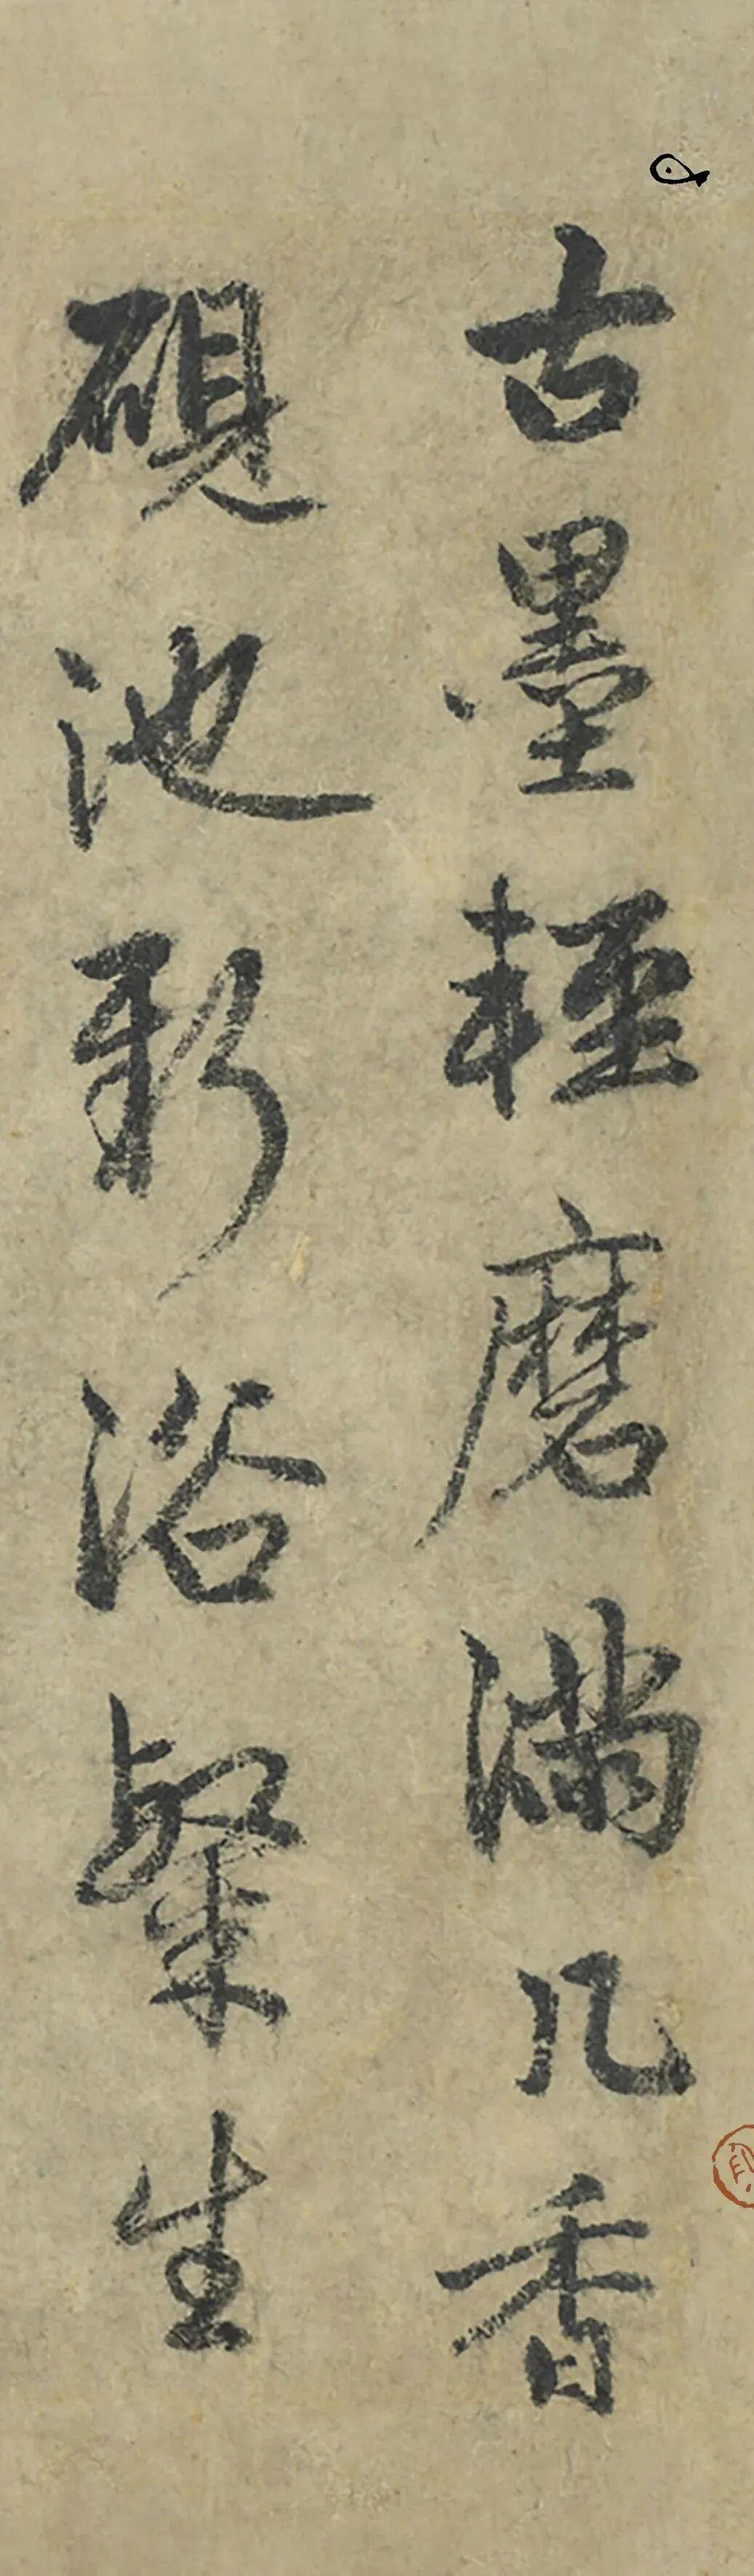 古墨輕磨滿几香
硯池新浴粲生